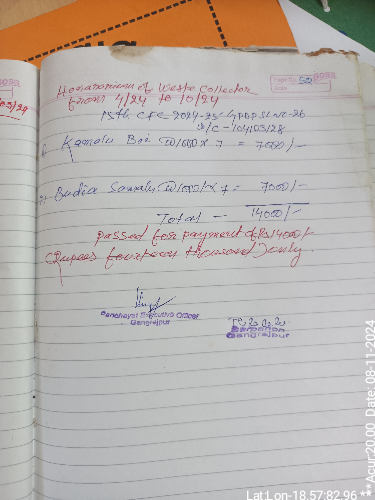 Page No.
Date
Honorarium of Waste Collector
from 4/24 to 10/24
15th CFC 2024-25 GPDP Sl No-26
A/C - 104103128
1) Kamalu Boi @1000 x 7 = 7000/-
2) Budia Samalu @1000/- x 7 = 7000/-
Total - 14000/-
passed for payment of Rs 14000/-
(Rupees fourteen thousand) only
Panchayat Executive Officer
Gangrajpur
Sarpanch
Gangrajpur
Lat Lon-18.57.82.96 ***Acur:20.00 Date: 08-11-2024